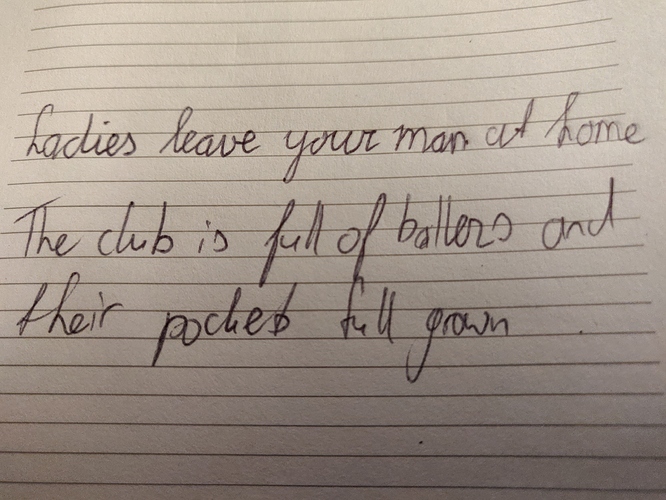 Ladies leave your man at home
The club is full of ballers and
their pocket full grown